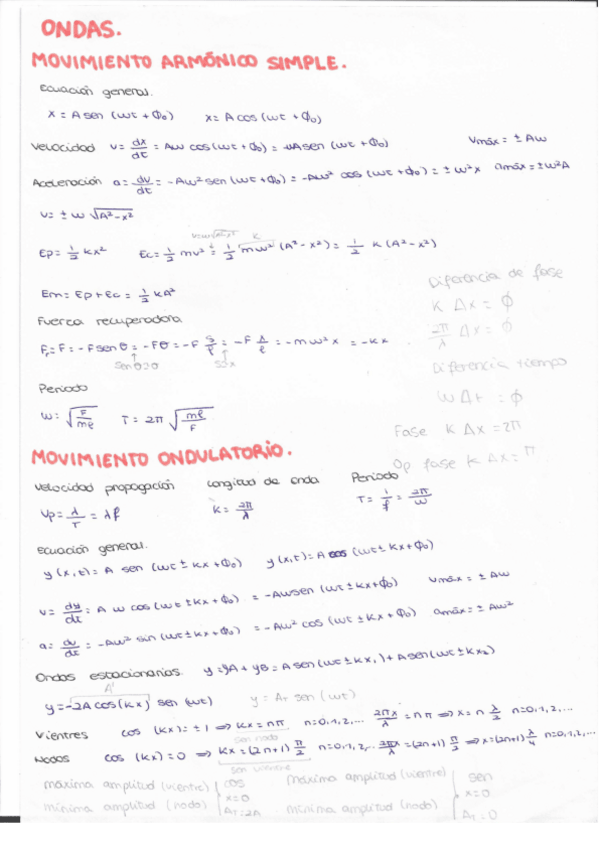 ONDAS.
MOVIMIENTO ARMÓNICO SIMPLE.
Ecuación general.
x = A sen (ωt + ϕ₀)   x = A cos (ωt + ϕ₀)
Velocidad v = dx/dt = Aω cos(ωt + ϕ₀) = -ωA sen (ωt + ϕ₀)   Vmáx = ± Aω
Aceleración a = dv/dt = -Aω² sen (ωt + ϕ₀) = -Aω² cos (ωt + ϕ₀) = ± ω²x   amáx = ± ω²A
v = ± ω √(A² - x²)
Ep = 1/2 kx²   Ec = 1/2 mv² = 1/2 mω² (A² - x²) = 1/2 K (A² - x²)
K
Em = Ep + Ec = 1/2 kA²
Diferencia de fase
K Δx = ϕ
2π/λ Δx = ϕ
Fuerza recuperadora
Fr = F = -F sen θ = -Fθ = -F S/ℓ = -F x/ℓ = -mω²x = -kx
sen θ ≈ θ   S ≈ x
Diferencia tiempo
ω Δt = ϕ
Periodo
ω = √(F/mℓ)   T = 2π √(mℓ/F)
Fase K Δx = 2π
Op fase K Δx = π
MOVIMIENTO ONDULATORIO.
Velocidad propagación   Longitud de onda   Periodo
Vp = λ/T = λf   K = 2π/λ   T = 1/f = 2π/ω
Ecuación general.
y (x, t) = A sen (ωt ± Kx + ϕ₀)   y (x, t) = A cos (ωt ± Kx + ϕ₀)
v = dy/dt = A ω cos (ωt ± Kx + ϕ₀) = -Aω sen (ωt ± Kx + ϕ₀)   Vmáx = ± Aω
a = dv/dt = -Aω² sin (ωt ± Kx + ϕ₀) = -Aω² cos (ωt ± Kx + ϕ₀)   amáx = ± Aω²
Ondas estacionarias. y = yA + yB = A sen (ωt ± Kx₁) + A sen (ωt ± Kx₂)
A'
y = -2A cos (Kx) sen (ωt)   y = AT sen (ωt)
Vientres   cos (Kx) = ± 1 ⇒ Kx = nπ   n = 0, 1, 2, ...   2πx/λ = nπ ⇒ x = n λ/2   n = 0, 1, 2, ...
sen nodo
Nodos   cos (Kx) = 0 ⇒ Kx = (2n+1) π/2   n = 0, 1, 2, ...   2πx/λ = (2n+1) π/2 ⇒ x = (2n+1) λ/4   n = 0, 1, 2, ...
sen vientre
máxima amplitud (vientre)   cos   Máxima amplitud (vientre)   sen
x = 0   x = 0
mínima amplitud (nodo)   AT = 2A   mínima amplitud (nodo)   AT = 0